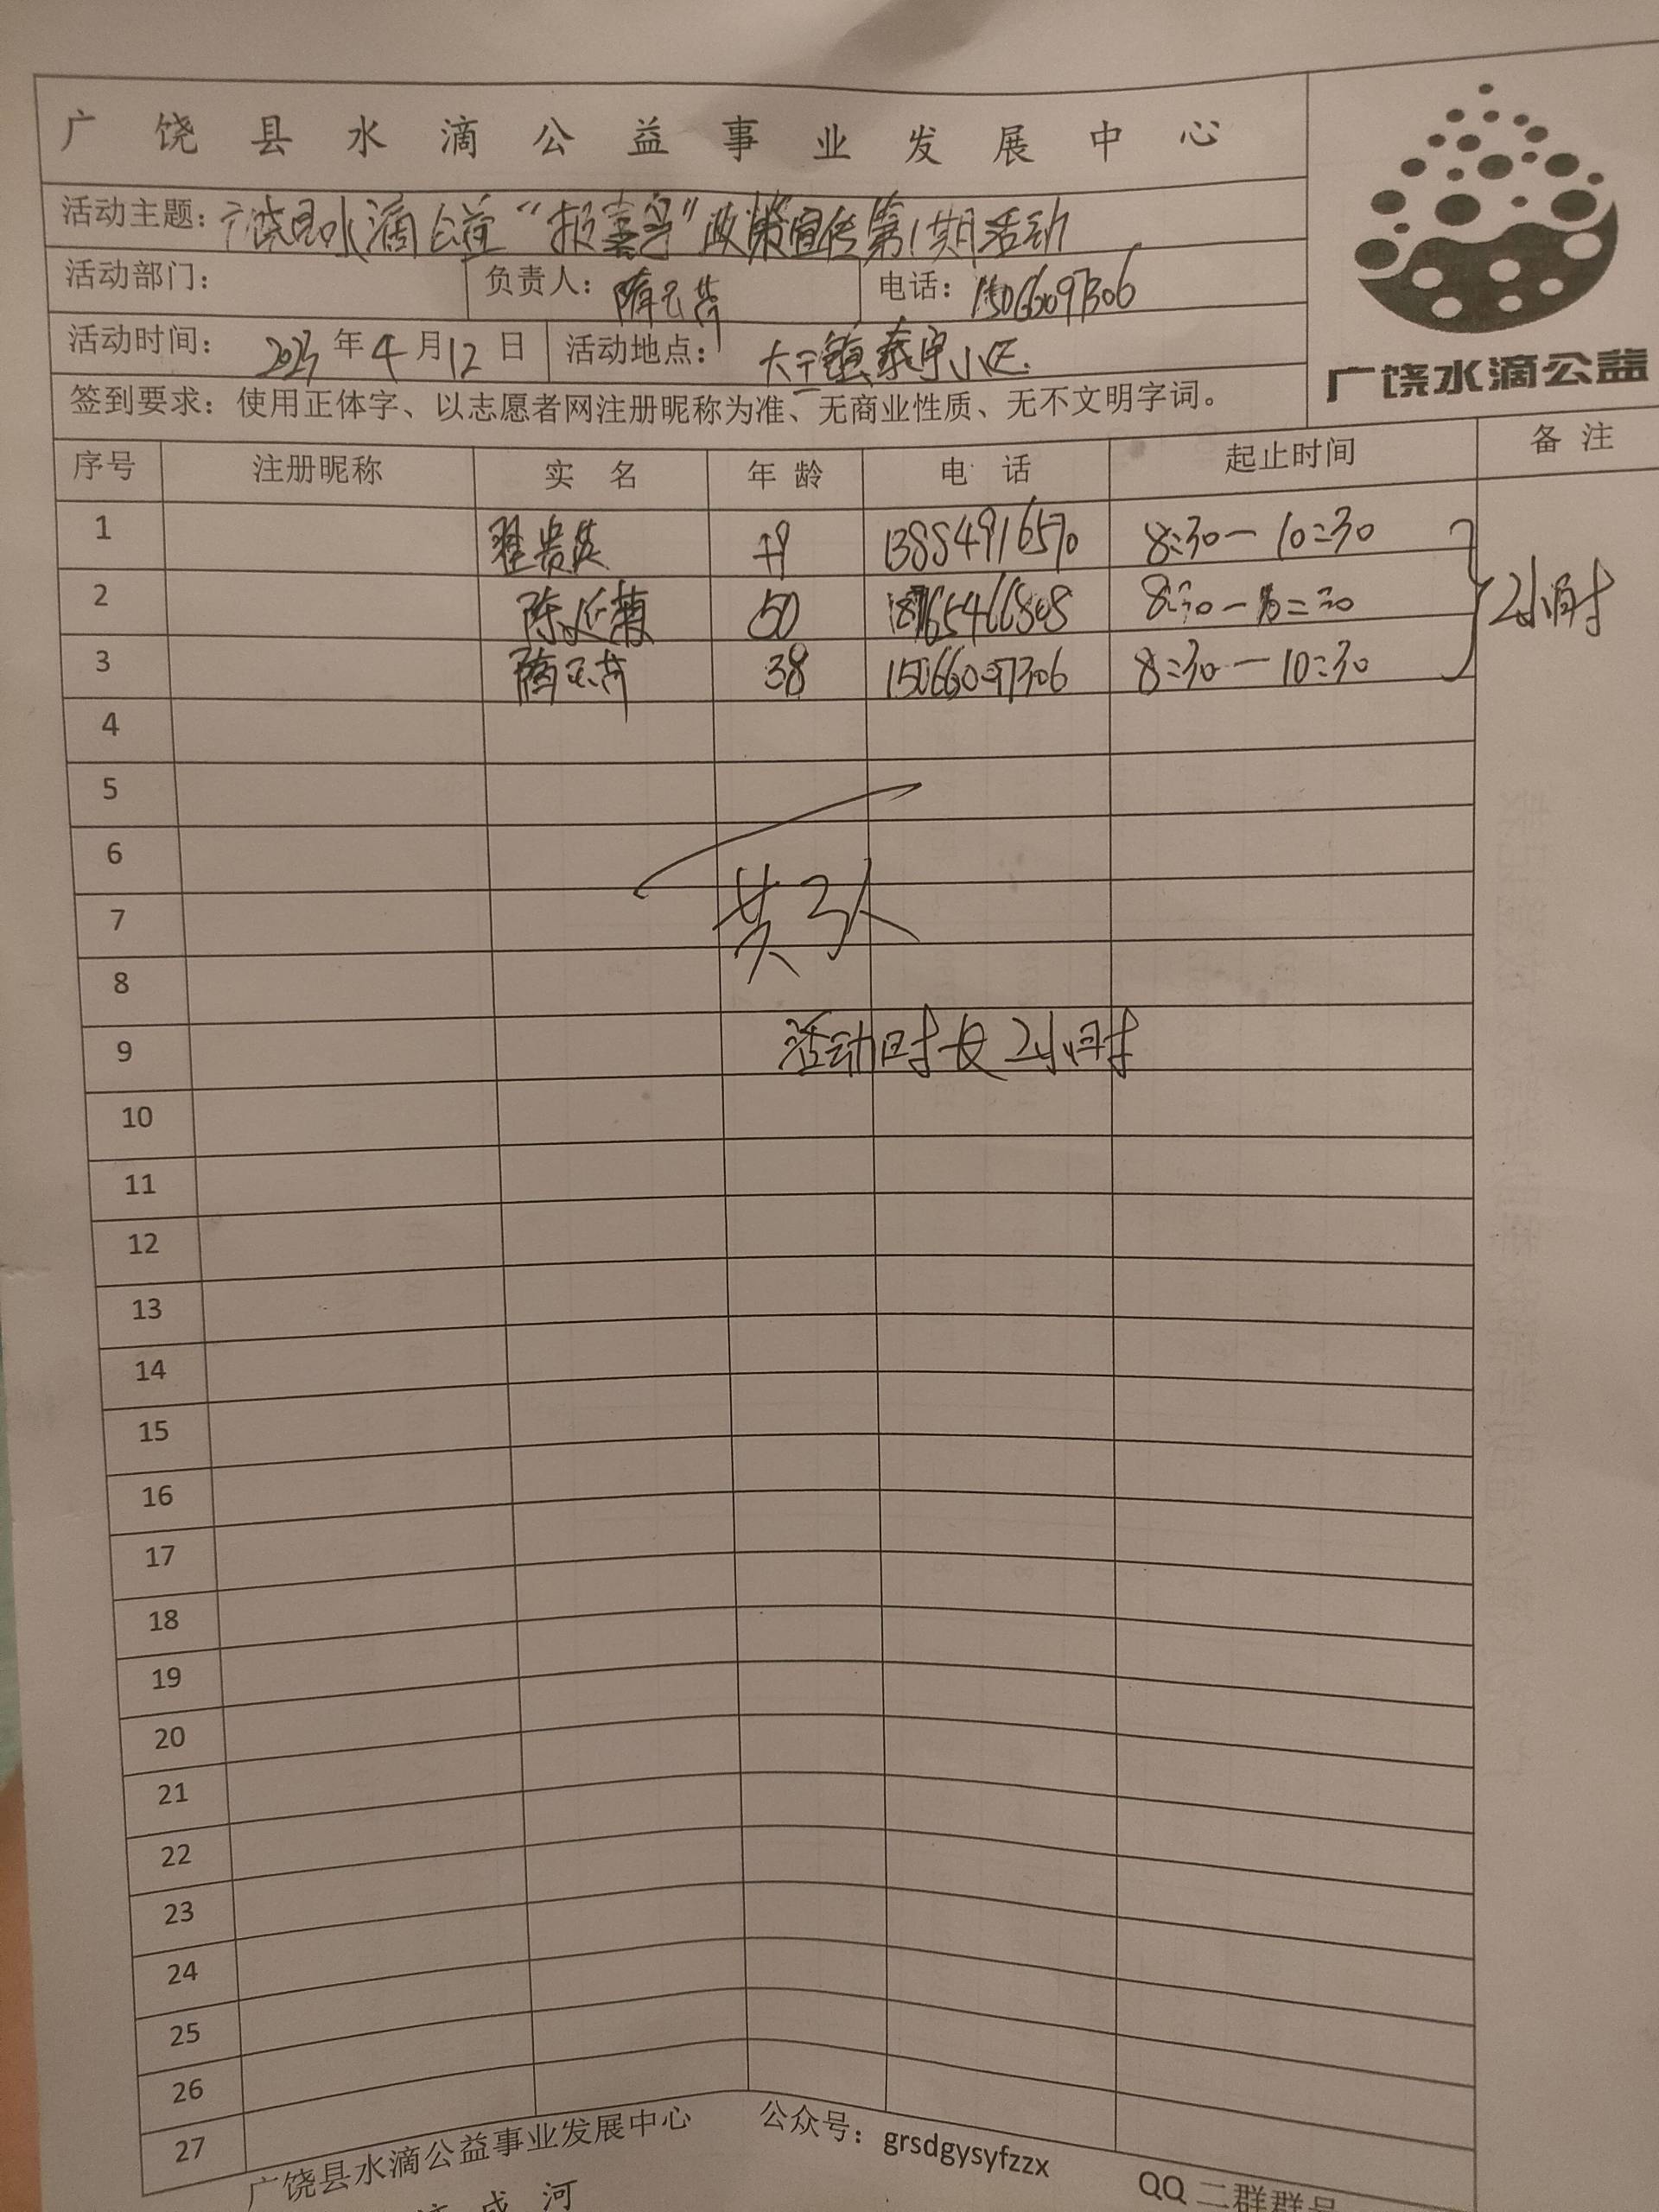 广饶县水滴公益事业发展中心
活动主题：广饶县水滴公益“报嘉宇”政策宣传第1期活动
活动部门： 负责人： 电话：15066097306
活动时间： 年4月12日 活动地点：大王镇泰宇小区.
签到要求：使用正体字、以志愿者网注册昵称为准、无商业性质、无不文明字词。
广饶水滴公益
序号 注册昵称 实名 年龄 电话 起止时间 备注
1 13854916570 8:30－10:30
2 50 18765466808 8:30－10:30 2小时
3 38 15066097306 8:30－10:30
4
5
6
7 共3人
8
9 活动时长2小时
10
11
12
13
14
15
16
17
18
19
20
21
22
23
24
25
26
27
广饶县水滴公益事业发展中心 公众号：grsdgysyfzzx QQ二群群号
成河